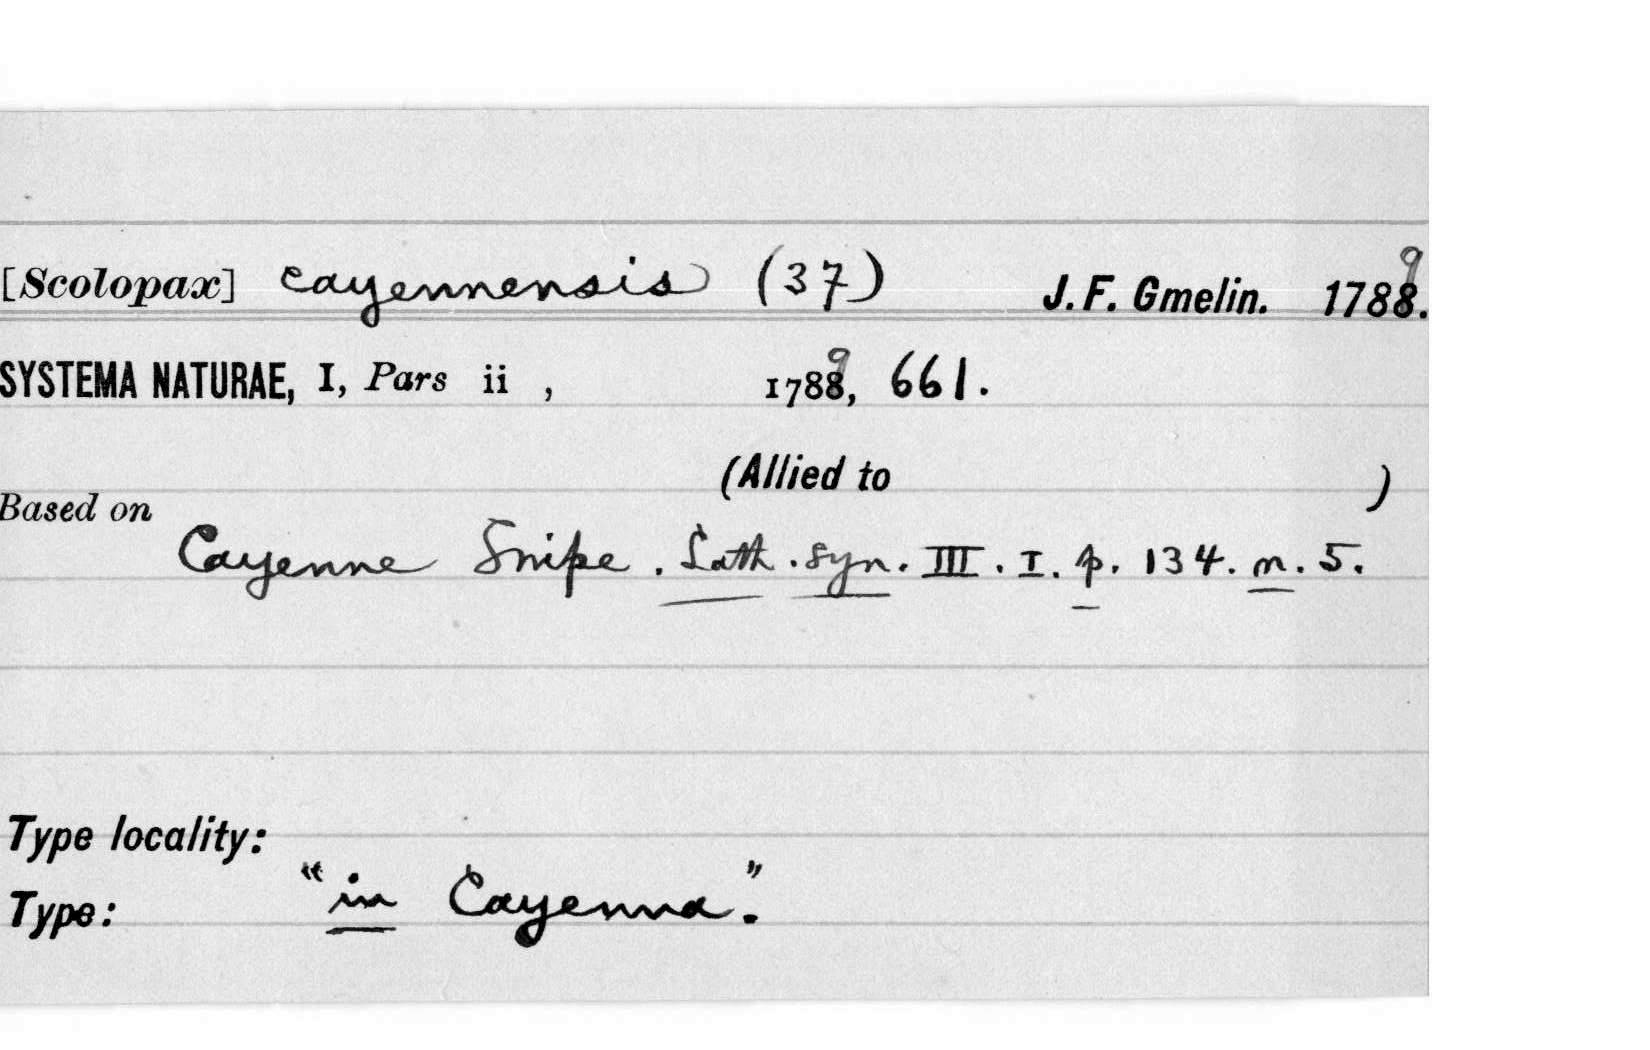 [Scolopax] cayennensis (37) J. F. Gmelin. 1788.9
SYSTEMA NATURAE, I, Pars ii , 1788,9 661.
(Allied to )
Based on
Cayenne Snipe . Lath . Syn. III . I. p. 134. n. 5.
Type locality:
"in Cayenna."
Type: